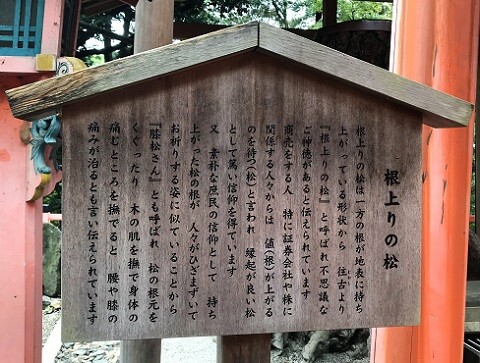 根上りの松
根上りの松は一方の根が地表に持ち
上がっている形状から 往古より
『根上りの松』と呼ばれ不思議な
ご神徳があると伝えられています
商売をする人 特に証券会社や株に
関係する人々からは 値(根)が上がる
のを待つ(松)と言われ 縁起が良い松
として篤い信仰を得ています
又 素朴な庶民の信仰として 持ち
上がった松の根が 人々がひざまずいて
お祈りする姿に似ていることから
『膝松さん』とも呼ばれ 松の根元を
くぐったり 木の肌を撫で身体の
痛むところを撫でると 腰や膝の
痛みが治るとも言い伝えられています